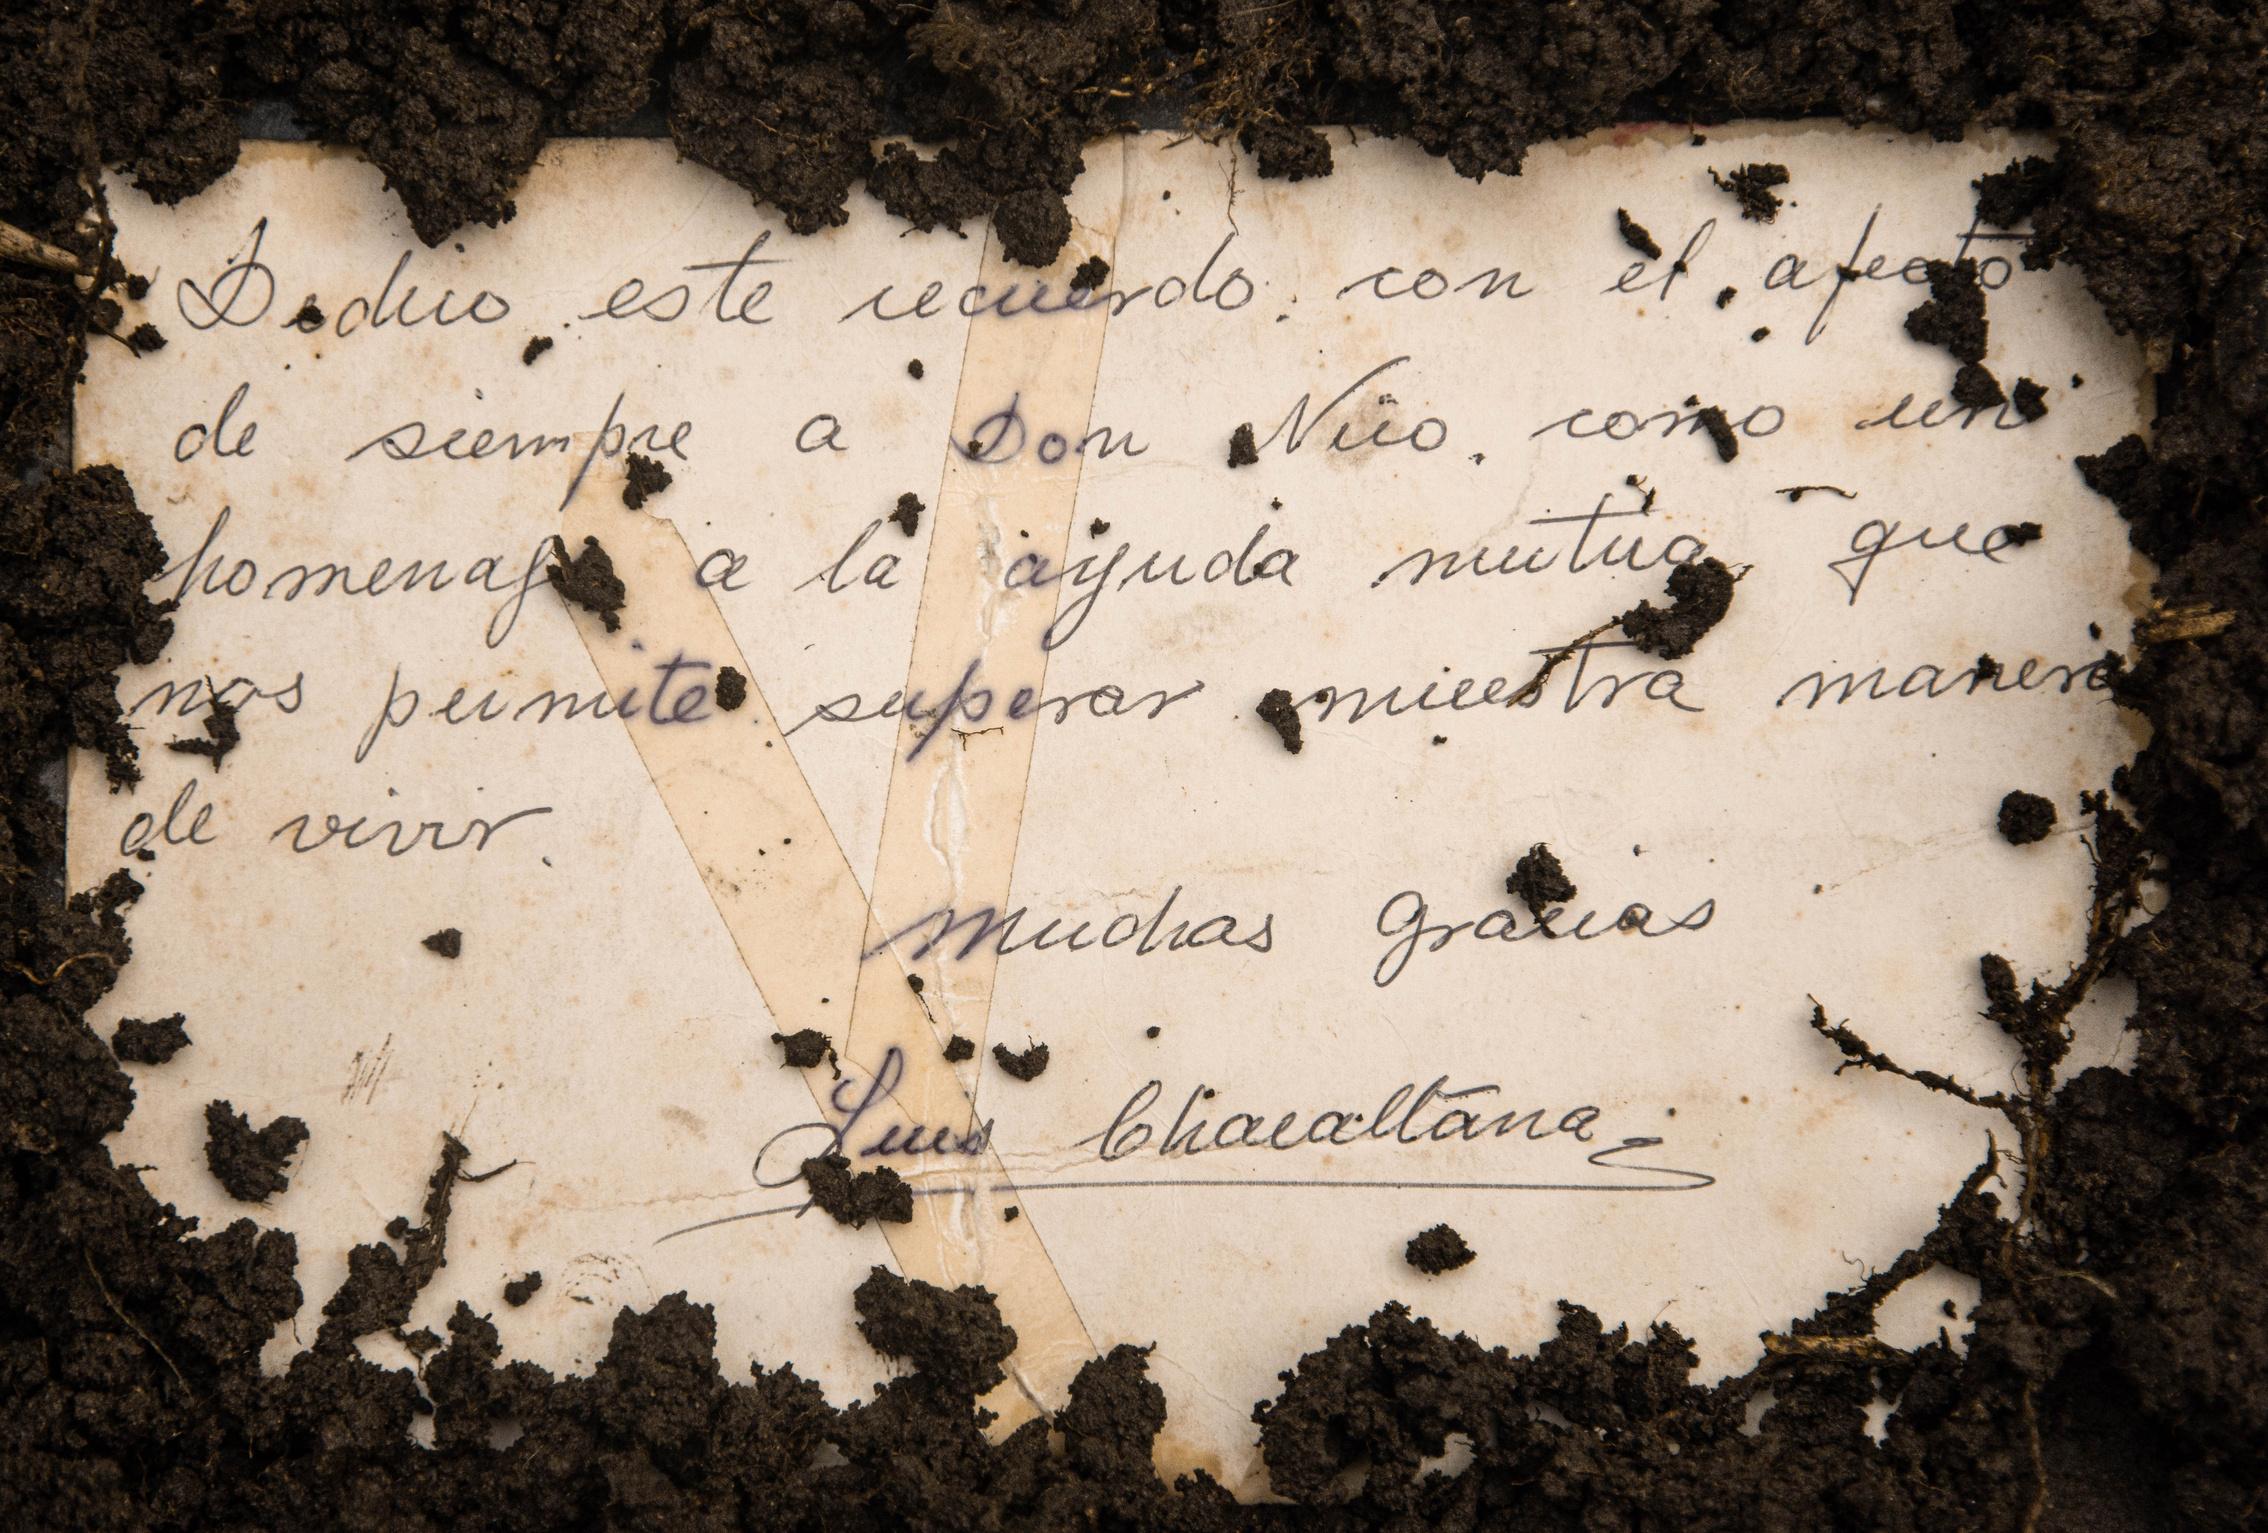 Dedico este recuerdo. con el afecto
de siempre a Don Nico. como un
homenaje a la ayuda mutua que
nos permite superar nuestra manera
de vivir.
Muchas Gracias
Luis Chacaltana